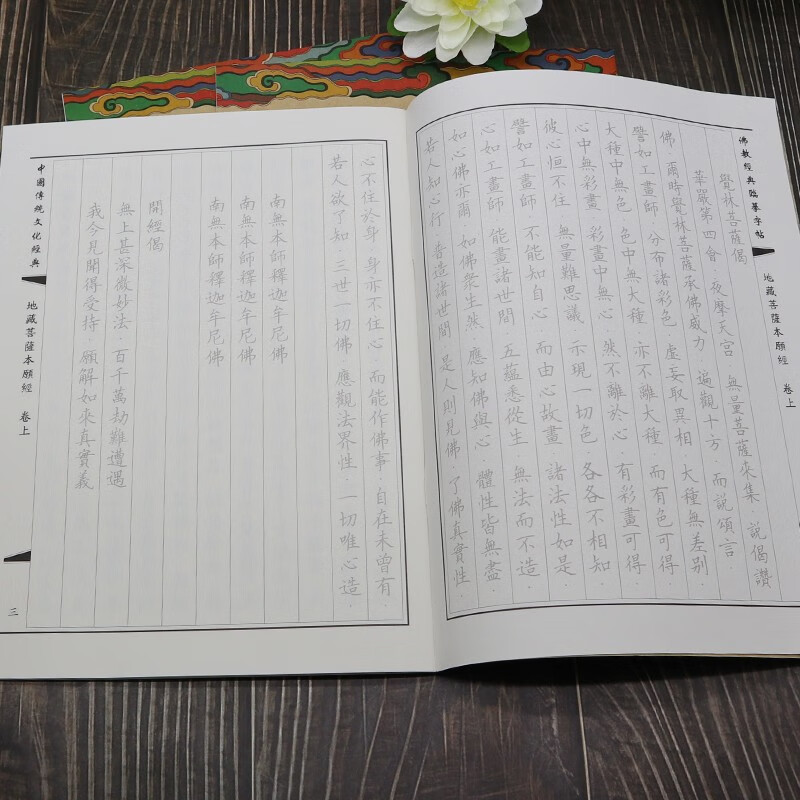 佛教經典臨摹字帖
地藏菩薩本願經 卷上
覺林菩薩偈
華嚴第四會·夜摩天宮·無量菩薩來集·說偈讚
佛·爾時覺林菩薩承佛威力·遍觀十方·而說頌言·
譬如工畫師·分布諸彩色·虛妄取異相·大種無差別·
大種中無色·色中無大種·亦不離大種·而有色可得·
心中無彩畫·彩畫中無心·然不離於心·有彩畫可得·
彼心恒不住·無量難思議·示現一切色·各各不相知·
譬如工畫師·不能知自心·而由心故畫·諸法性如是·
心如工畫師·能畫諸世間·五蘊悉從生·無法而不造·
如心佛亦爾·如佛衆生然·應知佛與心·體性皆無盡·
若人知心行·普造諸世間·是人則見佛·了佛真實性·
心不住於身·身亦不住心·而能作佛事·自在未曾有·
若人欲了知·三世一切佛·應觀法界性·一切唯心造·
南無本師釋迦牟尼佛
南無本師釋迦牟尼佛
南無本師釋迦牟尼佛
開經偈
無上甚深微妙法·百千萬劫難遭遇
我今見聞得受持·願解如來真實義
中國傳統文化經典
地藏菩薩本願經 卷上
三